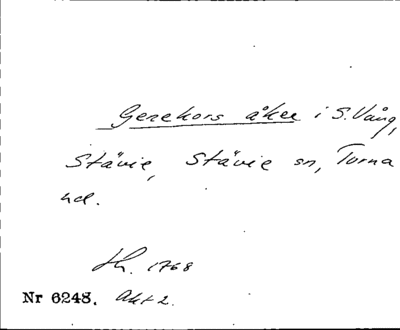 Gerekors åker i S. Vång,
Stävie, Stävie sn, Torna
hd.
Lh. 1768
Nr 6248. Akt 2.